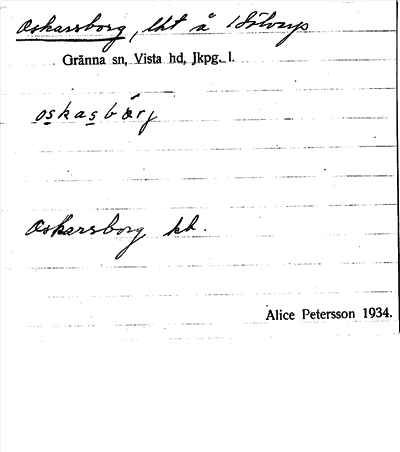 Oskarsborg, lht å Hölvarp
Gränna sn, Vista hd, Jkpg. l.
oskasbårj
Oskarsborg kb.
Alice Petersson 1934.